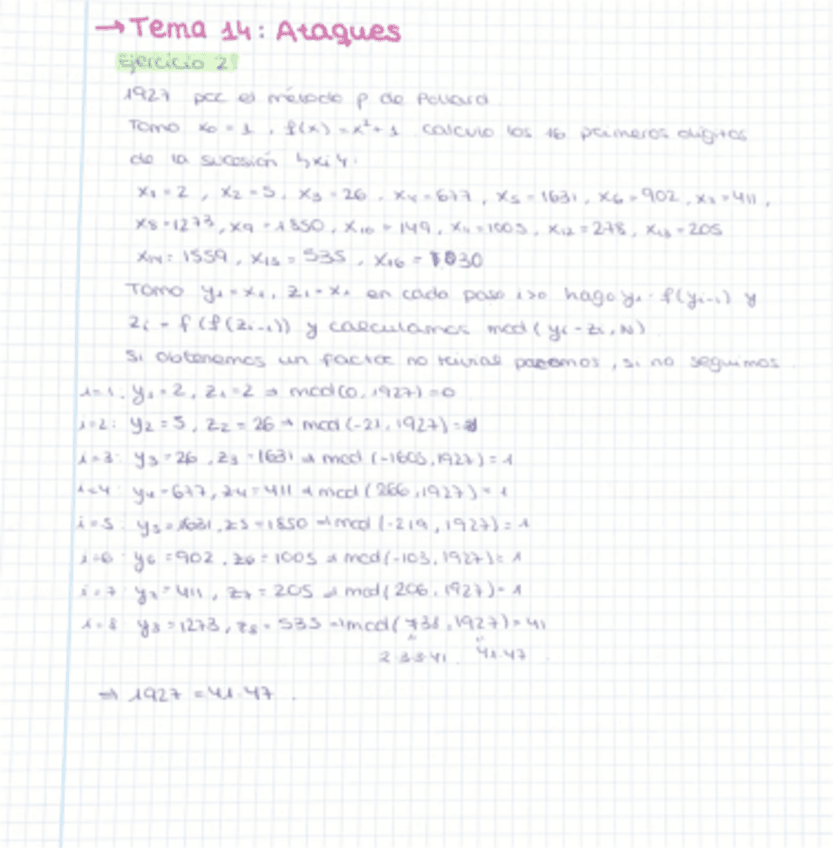 →Tema 14: Ataques
Ejercicio 2
1927 por el método ρ de Pollard.
Tomo x₀ = 1, f(x) = x²+1 calculo los 16 primeros dígitos
de la sucesión {xᵢ}:
x₁ = 2, x₂ = 5, x₃ = 26, x₄ = 677, x₅ = 1631, x₆ = 902, x₇ = 411,
x₈ = 1273, x₉ = 1850, x₁₀ = 149, x₁₁ = 1005, x₁₂ = 278, x₁₃ = 205
x₁₄ = 1559, x₁₅ = 535, x₁₆ = 1030
Tomo y₁ = x₁, z₁ = x₁ en cada paso i>0 hago yᵢ = f(yᵢ₋₁) y
zᵢ = f(f(zᵢ₋₁)) y calculamos mcd(yᵢ - zᵢ, N)
Si obtenemos un factor no trivial paramos, si no seguimos
i=1: y₁ = 2, z₁ = 2 ⇒ mcd(0, 1927) = 0
i=2: y₂ = 5, z₂ = 26 ⇒ mcd(-21, 1927) = 1
i=3: y₃ = 26, z₃ = 1631 ⇒ mcd(-1605, 1927) = 1
i=4: y₄ = 677, z₄ = 411 ⇒ mcd(266, 1927) = 1
i=5: y₅ = 1631, z₅ = 1850 ⇒ mcd(-219, 1927) = 1
i=6: y₆ = 902, z₆ = 1005 ⇒ mcd(-103, 1927) = 1
i=7: y₇ = 411, z₇ = 205 ⇒ mcd(206, 1927) = 1
i=8: y₈ = 1273, z₈ = 535 ⇒ mcd(738, 1927) = 41
2·3·3·41 41·47
⇒ 1927 = 41·47.